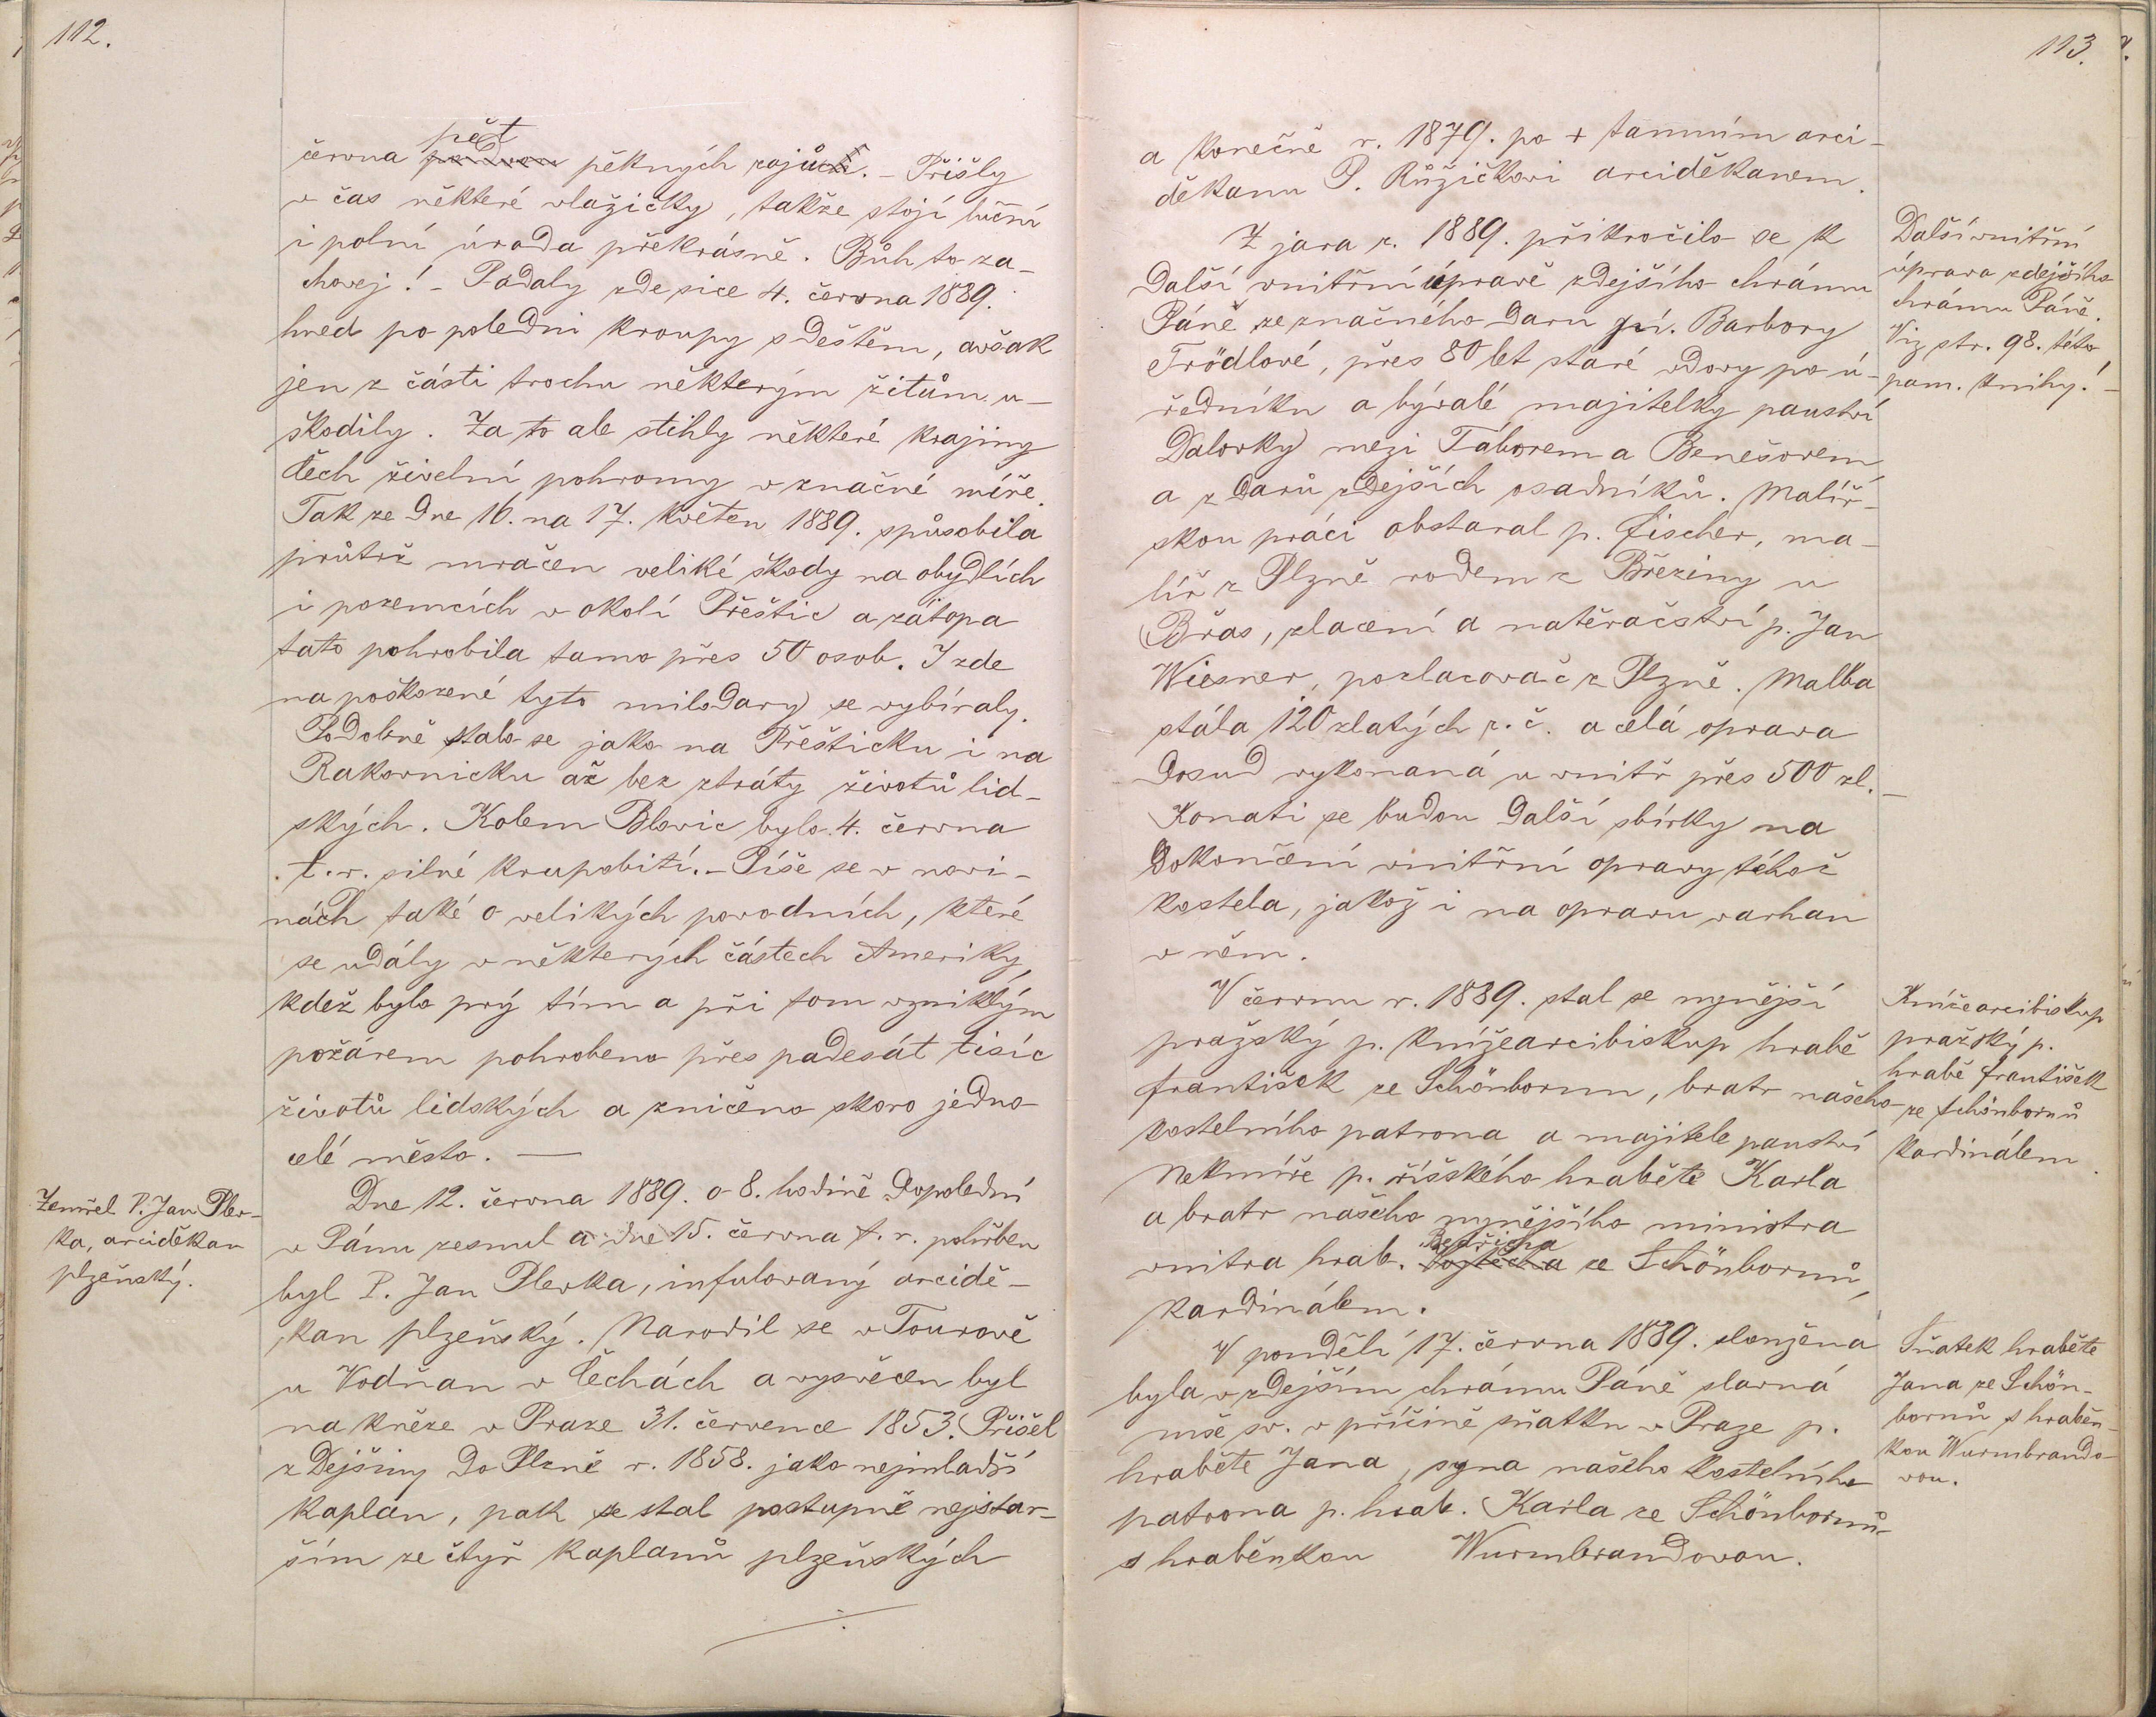 112.
června pět pěkných rojů. – Přišly
v čas některé vlažičky, takže stojí luční
i polní úroda překrásně. Bůh to za-
chovej! – Padaly zde sice 4. června 1889.
hned po poledni kroupy s deštěm, avšak
jen z části trochu některým žitům u-
škodily. Za to ale stihly některé krajiny
Čech živelní pohromy v značné míře.
Tak ze dne 16. na 17. květen 1889. spůsobila
průtrž mračen veliké škody na obydlích
i pozemcích v okolí Přeštic a zátopa
tato pohrobila tamo přes 50 osob. I zde
na poškozené tyto milodary se vybíraly.
Podobně stalo se jako na Přešticku i na
Rakovnicku až bez ztráty životů lid-
ských. Kolem Blovic bylo 4. června
t. r. silné krupobití. – Píše se v novi-
nách také o velikých povodních, které
se udály v některých částech Ameriky,
kdež bylo prý tím a při tom vzniklým
požárem pohrobeno přes padesát tisíc
životů lidských a zničeno skoro jedno
celé město. —
Zemřel P. Jan Pler-
ka, arciděkan
plzeňský.
Dne 12. června 1889. o 8. hodině dopolední
v Pánu zesnul a dne 15. června t. r. pohřben
byl P. Jan Plerka, infulovaný arcidě-
kan plzeňský. Narodil se v Tourově
u Vodňan v Čechách a vysvěcen byl
na kněze v Praze 31. července 1853. Přišel
z Dejšiny do Plzně r. 1858. jako nejmladší
kaplan, pak se stal postupně nejstar-
ším ze čtyř kaplanů plzeňských
113.
a konečně r. 1879. po + tamním arci-
děkanu P. Růžičkovi arciděkanem.
Z jara r. 1889. přikročilo se k
další vnitřní úpravě zdejšího chrámu
Páně ze značného daru pí. Barbory
Trödlové, přes 80 let staré vdovy po ú-
ředníku a bývalé majitelky panství
Dalovky mezi Táborem a Benešovem
a z darů zdejších osadníků. Malíř-
skou práci obstaral p. Fischer, ma-
líř z Plzně rodem z Březiny u
Břas, zlacení a natěračství p. Jan
Wiesner, pozlacovač z Plzně. Malba
stála 120 zlatých r. č. a celá oprava
dosud vykonaná u vnitř přes 500 zl. –
Konati se budou další sbírky na
dokončení vnitřní opravy téhož
kostela, jakož i na opravu varhan
v něm.
Další vnitřní
úprava zdejšího
chrámu Páně.
Viz str. 98. této
pam. knihy! –
V červnu r. 1889. stal se nynější
pražský p. knížearcibiskup hrabě
František ze Schönbornu, bratr našeho
kostelního patrona a majitele panství
Nekmíře p. říšského hraběte Karla
a bratr našeho nynějšího ministra
vnitra hrab. Bedřicha ze Schönbornů,
kardinálem.
Knížearcibiskup
pražský p.
hrabě František
ze Schönbornů
kardinálem.
V pondělí 17. června 1889. sloužena
byla v zdejším chrámu Páně slavná
mše sv. v příčině sňatku v Praze p.
hraběte Jana, syna našeho kostelního
patrona p. hrab. Karla ze Schönbornů
s hraběnkou Wurmbrandovou.
Sňatek hraběte
Jana ze Schön-
bornů s hraběn-
kou Wurmbrando-
vou.